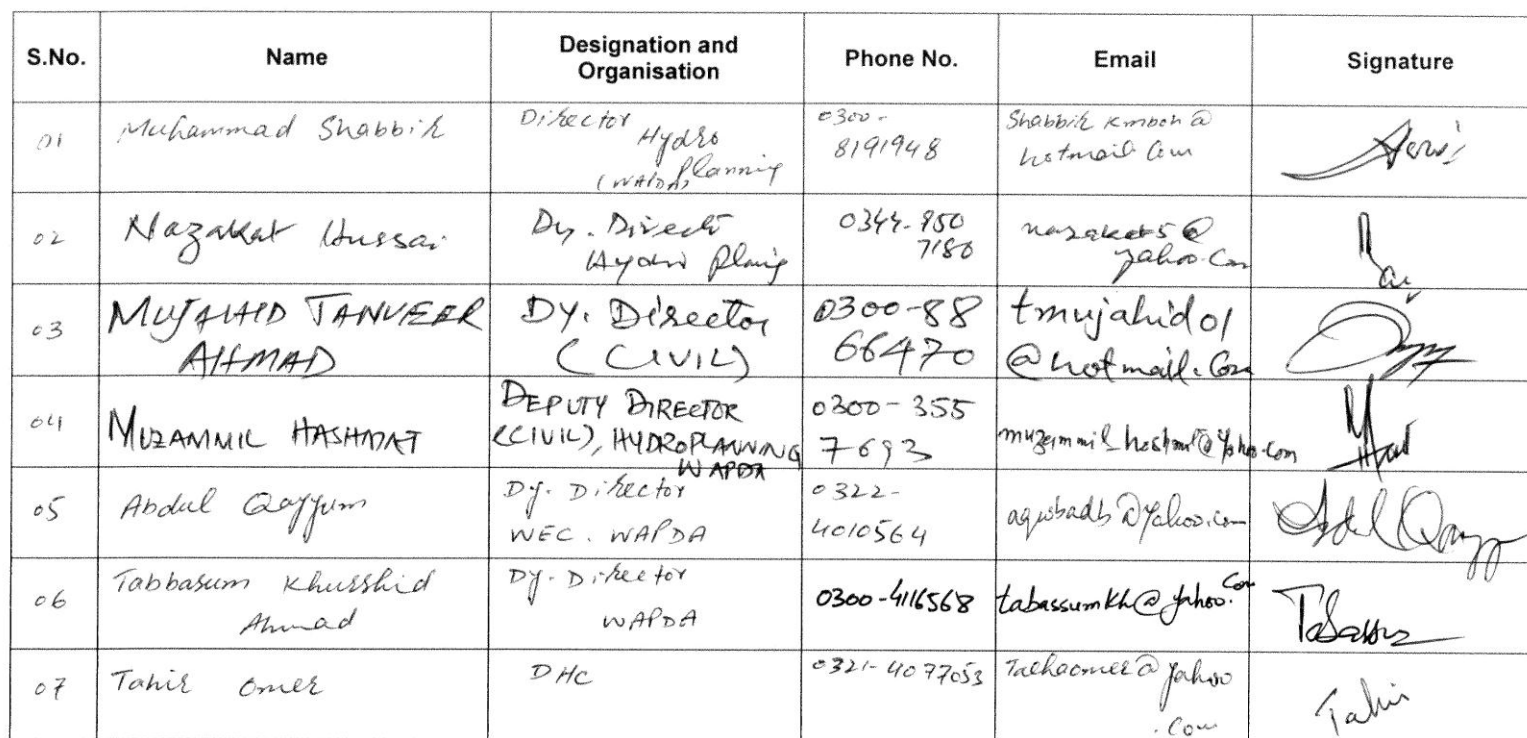 S.No. Name Designation and Organisation Phone No. Email Signature
01 Muhammad Shabbir Director Hydro Planning (WAPDA) 0300-8191948 Shabbir kmboh@hotmail Com
02 Nazakat Hussai Dy. Directi Hydro Planig 0344-850 7180 nazakat5@yahoo.Com
03 MUJAHID TANVEER AHMAD DY. Director (CIVIL) 0300-88 66470 tmujahid01@hotmail.Com
04 MUZAMMIL HASHMAT DEPUTY DIRECTOR (CIVIL), HYDROPLANNING WAPDA 0300-355 7693 @Yahoo.com
05 Abdul Qayyum Dy. Director WEC. WAPDA 0322-4010564 @Yahoo.com Abdul Qayy
06 Tabbasum Khurshid Ahmad Dy. Director WAPDA 0300-4116568 tabassumkh@yahoo.Com
07 Tahir Omer DHC 0321-4077053 @yahoo.com Tahir